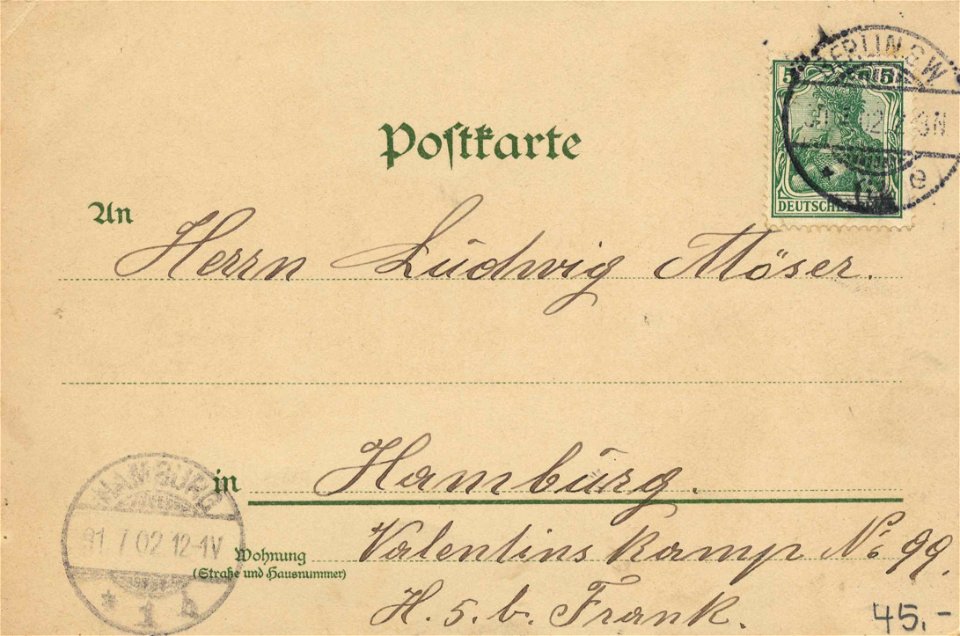 BERLIN.S.W.
5 5
02
e
DEUTSCHE
Postkarte
An
Herrn Ludwig Möser.
in Hamburg.
HAMBURG
31 7 02 12-1V
* 1 *
Wohnung
(Straße und Hausnummer)
Valentins Kamp No 99.
H. 5. b. Frank.
45.-